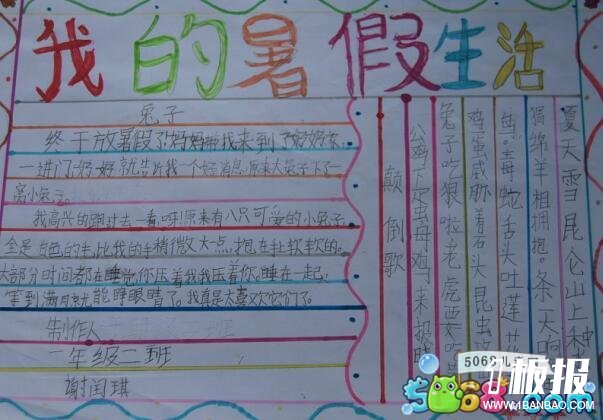 我的暑假生活
兔子
终于放暑假了妈妈带我来到了奶奶家,
一进门奶奶就告诉我一个好消息,原来大兔子下了一
窝小兔子。
我高兴的跑过去一看,呀!原来有八只可爱的小兔子。
全是白色的毛,比我的手稍微大点,抱在手软软的。
大部分时间都在睡觉,你压着我我压着你,睡在一起,
等到满月就能睁眼睛了。我真是太喜欢它们了。
制作人
一年级二班
谢闰琪
夏天雪昆仑山上种
绵羊相拥抱。一条大
毒蛇舌头吐莲花
鸡蛋威胁着石头昆虫
兔子吃狼啦老虎要吃
公鸡下虫母鸡来报晓
颠倒歌
5068儿
5068.com
1板报
WWW.1BANBAO.COM